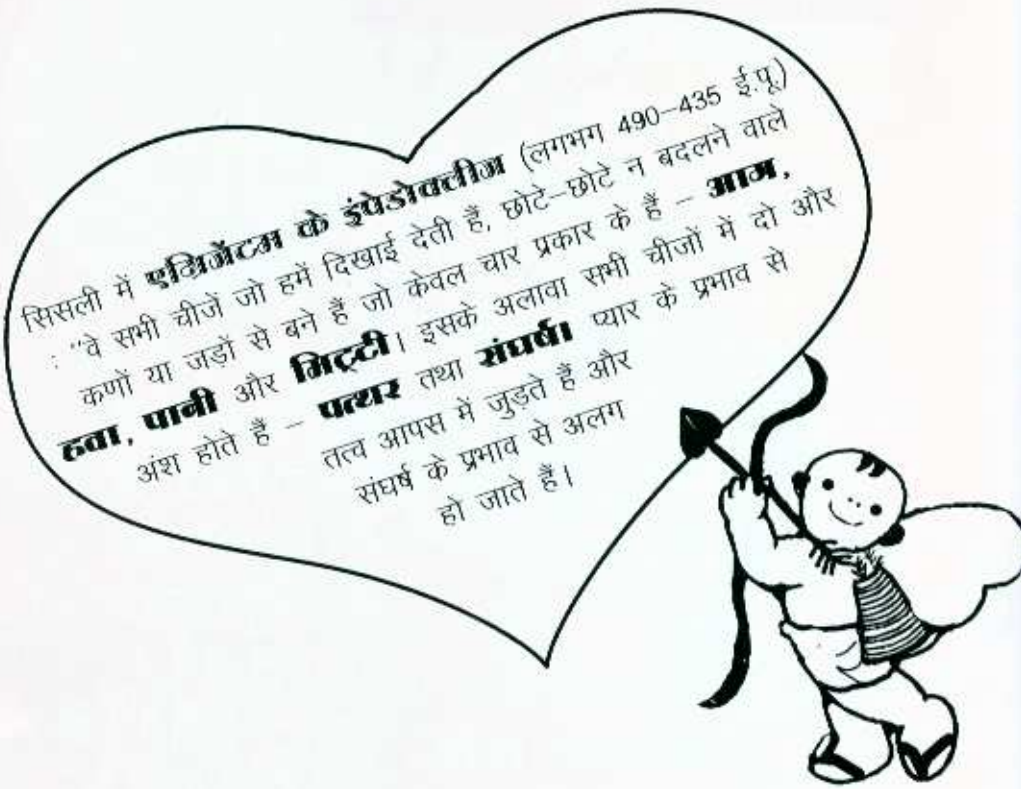 सिसली में एग्रिजेंटम के इंपेडोक्लीज (लगभग 490–435 ई.पू.)
: "वे सभी चीजें जो हमें दिखाई देती हैं, छोटे–छोटे न बदलने वाले
कणों या जड़ों से बने हैं जो केवल चार प्रकार के हैं – आग,
हवा, पानी और मिट्टी। इसके अलावा सभी चीजों में दो और
अंश होते हैं – पत्थर तथा संघर्ष। प्यार के प्रभाव से
तत्व आपस में जुड़ते हैं और
संघर्ष के प्रभाव से अलग
हो जाते हैं।